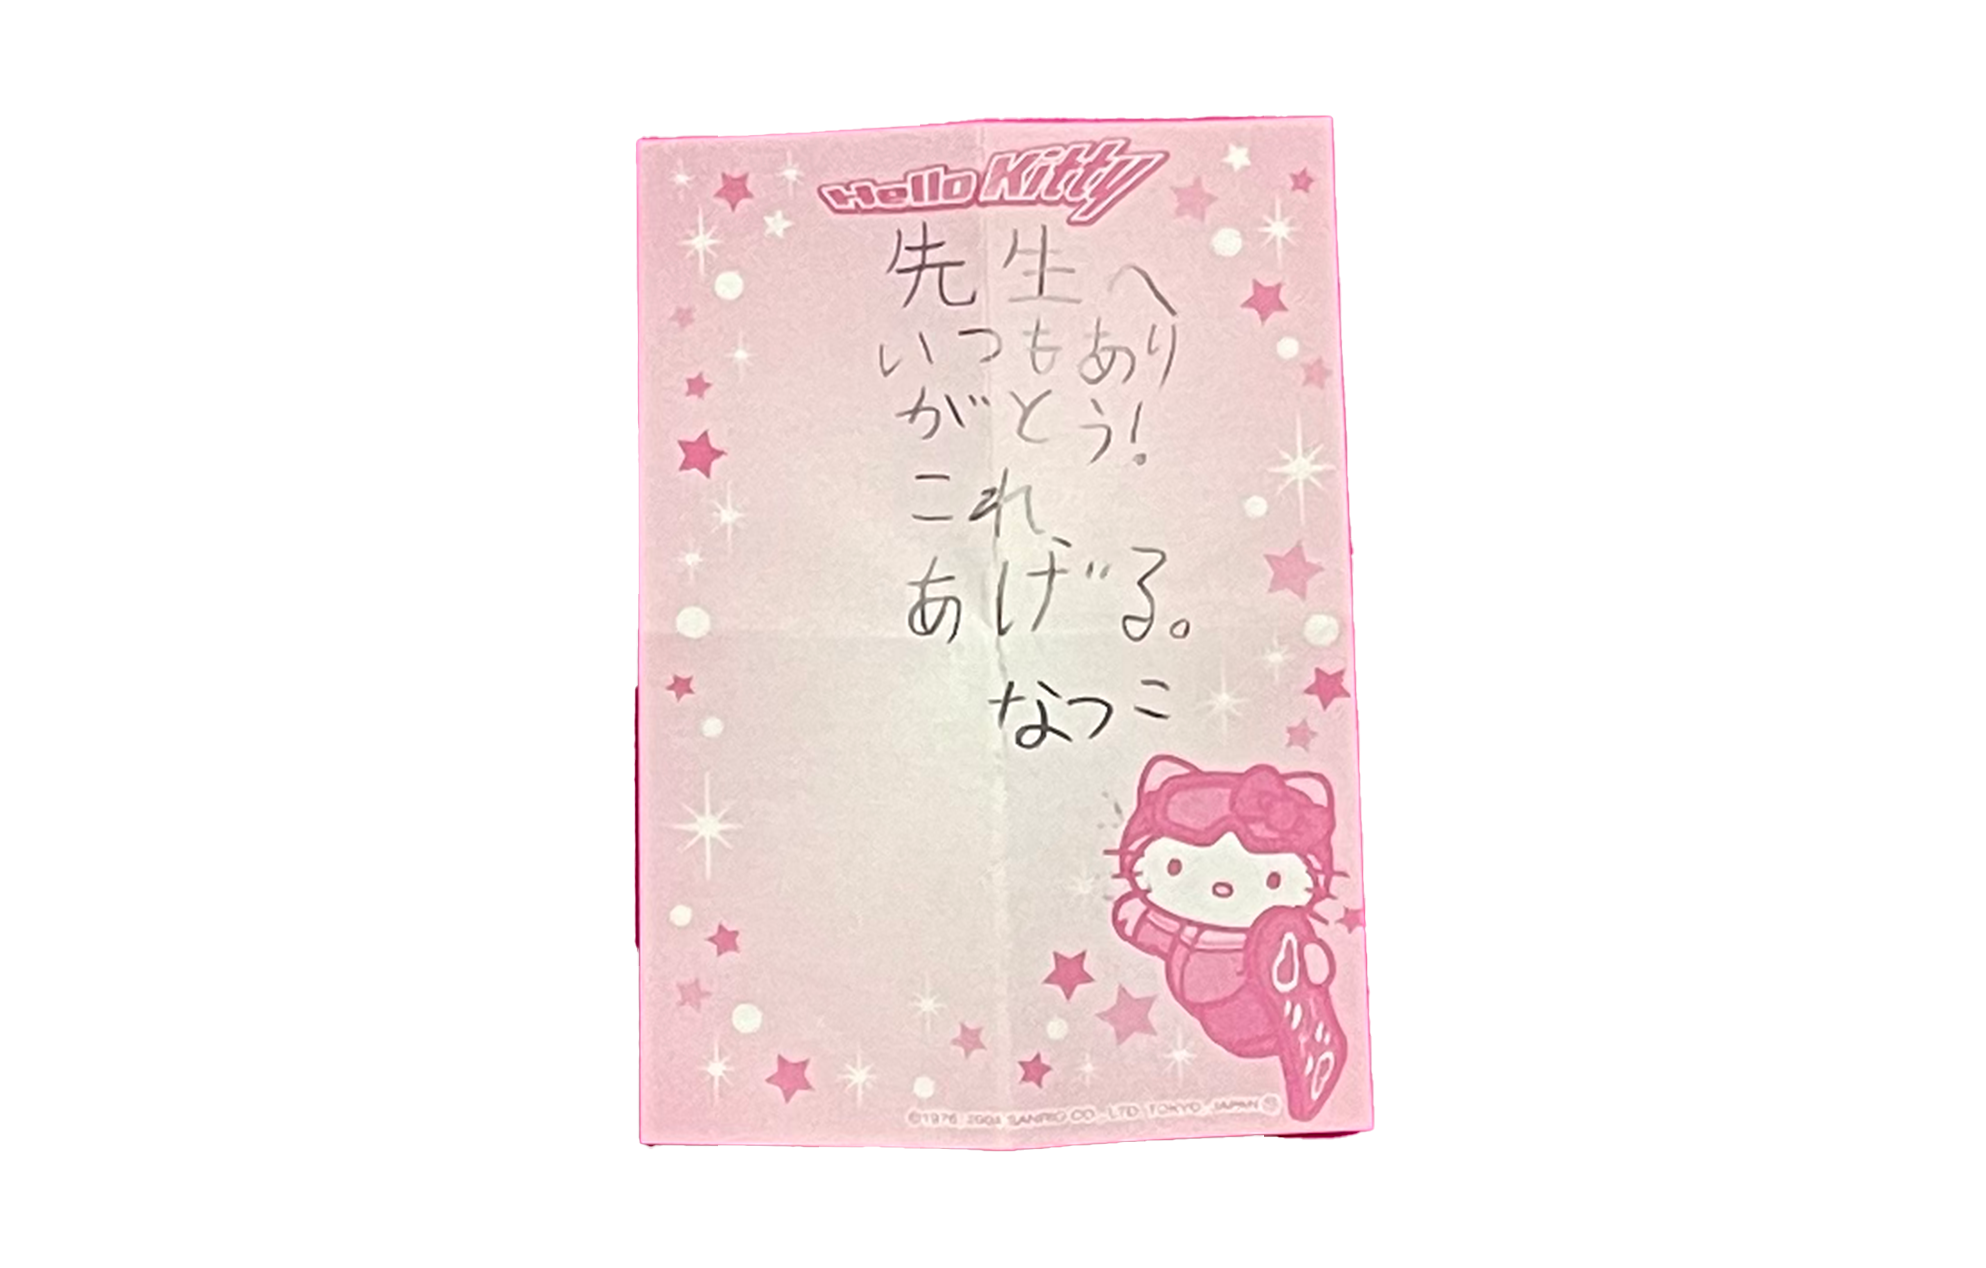 Hello Kitty
先生へ
いつもあり
がとう!
これ
あげる。
なつこ
©1976, 2004 SANRIO CO., LTD. TOKYO, JAPAN